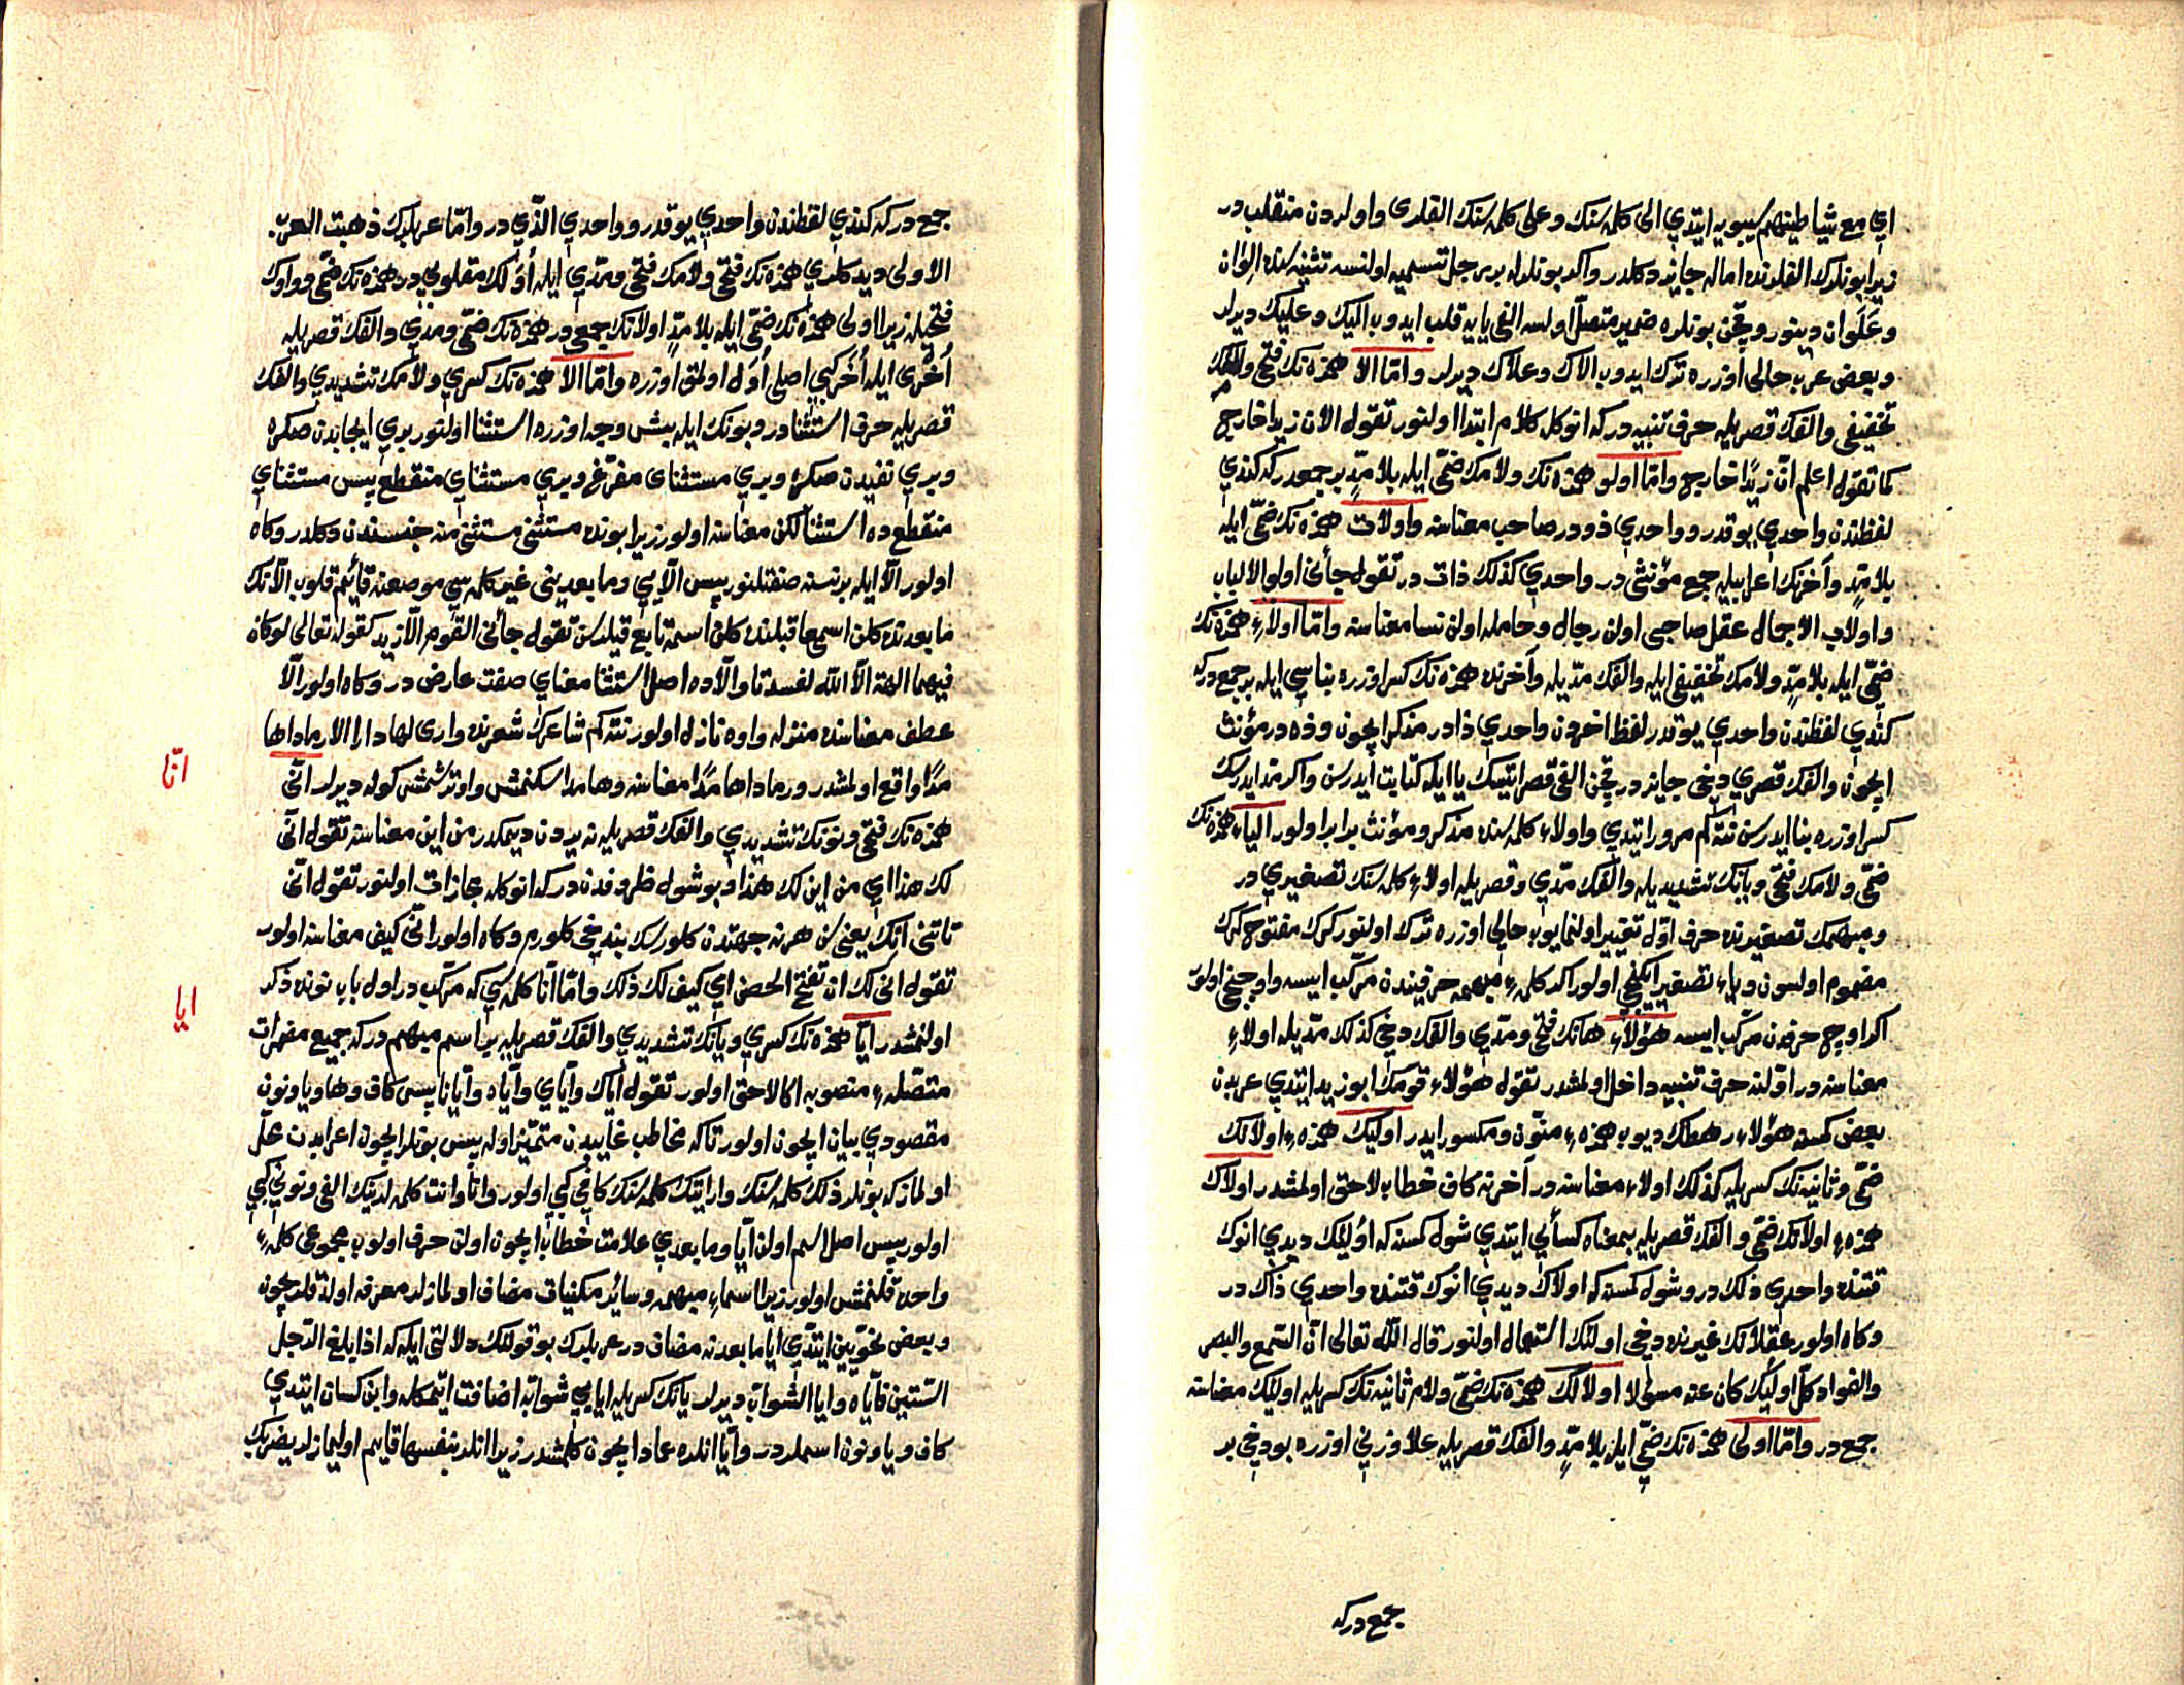 اي مع شياطينهم سيبويه ايتدي الى كلمه سنك وعلى كلمه سنك الفلرى واولردن منقلب در
زيرا بونلرك الفلرنده اماله جايز دكلدر واكر بونلرله بر رجل تسميه اولنسه تثنيه سنده الوان
وعلوان دينور وقچن بونلره ضمير متصل اولسه الفى يايه قلب ايدوب اليك وعليك ديرلر
وبعض عرب حالى اوزره ترك ايدوب الاك وعلاك ديرلر واما الا همزه نك فتحى ولامك
تخفيفى والفك قصريله حرف تنبيه دركه انوكله كلام ابتدا اولنور تقول الا ان زيدا خارج
كما تقول اعلم ان زيدا خارج واما اولو همزه نك ولامك ضمى ايله بلا مد بر جمعدركه كندي
لفظندن واحدي يوقدر وواحدي ذو در صاحب معناسنه واولات همزه نك ضمى ايله
بلا مد وآخرنك اعرابيله جمع مؤنثى در واحدي كذلك ذات در تقول جائنى اولوا الالباب
واولات الاحمال عقل صاحبى اولن رجال وحامله اولن نسا معناسنه واما اولاء همزه نك
ضمى ايله بلا مد ولامك تخفيفى ايله والفك مديله وآخرنده همزه نك كسر اوزره بناسى ايله بر جمع دركه
كندي لفظندن واحدي يوقدر لفظ اخردن واحدي ذا در مذكر ايچون وذه در مؤنث
ايچون والفك قصري دخى جايز در قچن الفى قصر ايتسك يا ايله كتابت ايدرسن واكر مد ايدرسك
كسر اوزره بنا ايدرسن نته كم مرور ايتدي واولاء كلمه سنده مذكر ومؤنث برابر اولور الياء همزه نك
ضمى ولامك فتحى ويانك تشديديله والفك مدي وقصريله اولاء كلمه سنك تصغيري در
ومبهمك تصغيرنده حرف اول تغيير اولنمايوب حالى اوزره ترك اولنور كرك مفتوح كرك
مضموم اولسون وياء تصغير ايكنجى اولور اكر كلمه مبهمه حرفيندن مركب ايسه واوچنجى اولور
اكر اوچ حرفدن مركب ايسه هؤلاء هانك فتح ومدي والفك دخى كذلك مديله اولاء
معناسنه در اولنه حرف تنبيه داخل اولمشدر تقول هؤلاء قومك ابو زيد ايتدي عربدن
بعض كمسنه هؤلاء رهطك ديوب همزه منون ومكسور ايدر اوليك همزه اولانك
ضمى وثانيه نك كسريله كذلك اولاء معناسنه در آخرنه كاف خطاب لاحق اولمشدر اولاك
همزه اولانك ضمى والفك قصريله بمعناه كسائى ايتدي شول كمسنه كه اوليك ديدي انوك
قتنده واحدي ذلك در وشول كمسنه كه اولاك ديدي انوك قتنده واحدي ذاك در
وكاه اولور عقلانك غيرنده دخى اولئك استعمال اولنور قال الله تعالى ان السمع والبصر
والفواد كل اوليك كان عنه مسؤلا اولالك همزه نك ضمى ولام ثانيه نك كسريله اوليك معناسنه
جمع در واما اولى همزه نك ضمى ايله بلا مد والفك قصريله علا وزنى اوزره بودخى بر
جمع دركه
جمع دركه كندي لفظندن واحدي يوقدر وواحدي الذي در واما عربلرك ذهبت العرب
الاولى ديدكلري همزه نك فتحى ولامك فتحى ومدي ايله اولك مقلوبي در همزه نك ضمى وواوك
فتحيله زيرا اولى همزه نك ضمى ايله بلا مد اولانك جمعى در همزه نك ضمى ومدي والفك قصريله
أخرى ايله أخر كبي اصلى أول اولمق اوزره واما الا همزه نك كسري ولامك تشديدي والفك
قصريله حرف استثنا در وبونك ايله بش وجه اوزره استثنا اولنور بري ايجابدن صكره
وبري نفيدن صكره وبري مستثناى مفرغ وبري مستثناي منقطع پس مستثناي
منقطع ده استثنا لكن معناسنه اولور زيرا بونده مستثنى مستثنى منه جنسندن دكلدر وكاه
اولور الا ايله بر نسنه صفتلنور پس الايى وما بعدينى غير كلمه سى موضعنه قائم قلوب الانك
ما بعدنده كلن اسمى ما قبلنده كلن اسمه تابع قيلرسن تقول جائنى القوم الا زيد كقوله تعالى لو كان
فيهما الهة الا الله لفسدتا والاده اصل استثنا معناي صفت عارض در وكاه اولور الا
عطف معناسنده منزله واوه نازل اولور نته كم شاعرك شعرنده وارى لها دارا الا رماداها
مدا واقع اولمشدر ورماداها مدا معناسنه وهامدا سكنمش واوترشمش كوله ديرلر انى
همزه نك فتحى ونونك تشديدي والفك قصريله نه يردن ديمكدر من اين معناسنه تقول انى
لك هذا اي من اين لك هذا وبو شول ظروفدندر كه انوكله مجازات اولنور تقول انى
تاتنى آتك يعنى سن هر نه جهتدن كلورسك بن دخى كلورم وكاه اولور انى كيف معناسنه اولور
تقول انى لك ان تفتح الحصن اي كيف لك ذلك واما انا كلمه سى كه مركب در اول باب نونده ذكر
اولنمشدر ايا همزه نك كسري ويانك تشديدي والفك قصريله بر اسم مبهم دركه جميع مضمرات
متصله منصوبه اكا لاحق اولور تقول اياك واياي واياه وايانا پس كاف وها ويا ونون
مقصودي بيان ايچون اولور تا كه مخاطب غايبدن متميز اوله پس بونلر ايچون اعرابدن محل
اولماز كه بونلر ذلك كلمه سنك وارايتك كلمه سنك كافى كبي اولور وانا وانت كلمه لرينك الفى ونونى كبي
اولور پس اصل اسم اولن ايا وما بعدي علامت خطاب ايچون اولن حرف اولوب مجموعى كلمه
واحده قلنمش اولور زيرا اسماء مبهمه وسائر مكنيات مضاف اولمازلر معرفه اولدقلريچون
وبعض نحويين ايتدي ايا ما بعدنه مضاف در عربلرك بو قوللرينك دلالتى ايله كه اذا بلغ الرجل
الستين فاياه وايا الشواب ديرلر يانك كسريله ايايي شوابه اضافت ايتمكله وابن كسان ايتدي
كاف ويا ونون اسملردر وايا انلره عماد ايچون كلمشدر زيرا انلر بنفسها قايم اولمازلر يضربك
انا
ايا